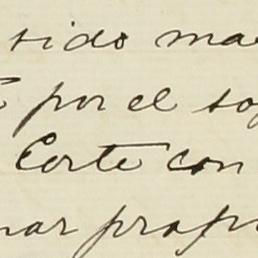 sido ma
por el so
Corte con
nar prop